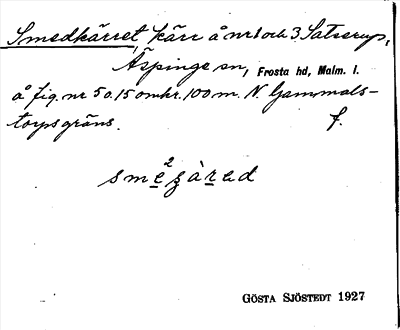 Smedkärret, kärr å nr 1 och 3 Satserup,
Äspinge sn, Frosta hd, Malm. l.
å fig. nr 5 o. 15 omkr. 100 m. N. Gammals-
torpsgräns. f.
GÖSTA SJÖSTEDT 1927